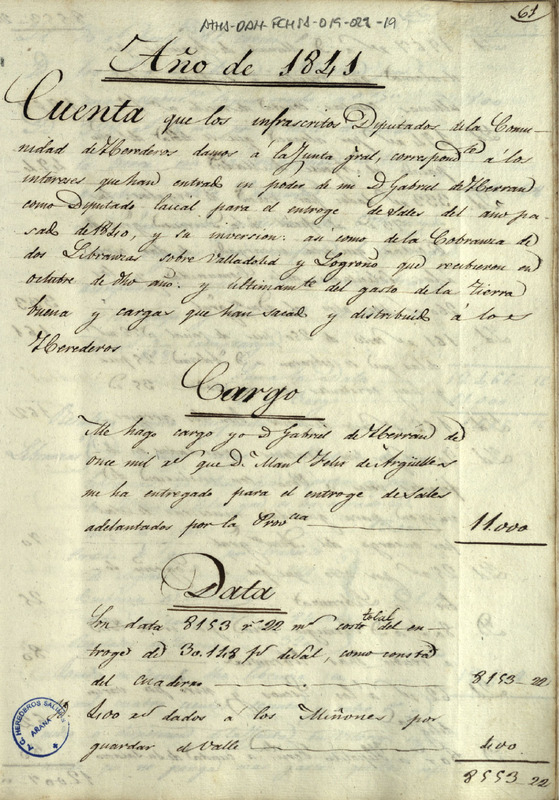 ATHA-DAH-FCHSA-019-021-19
61
Año de 1841
Cuenta que los infrascritos Diputados de la Comu-
nidad de Herederos damos á la Junta gral, correspondte á los
intereses que han entrad en poder de mi D Gabriel de Herran
como Diputado laical para el entroge de Sales del año pa-
sad de 1840, y su inversion: asi como de la Cobranza de
dos Libranzas sobre Valladolid y Logroño que recibieron en
octubre de dho año. y ultimamte del gasto de la Tierra
buena y cargas que han sacad y distribuid á los
Herederos
Cargo
Me hago cargo yo D Gabriel de Herran de
once mil rs que D. Manl Felix de Argüelles
me ha entregado para el entroge de Sales
adelantados por la Provcia 11.000
Data
Son data 8153 rs 22 ms costo total del en-
troge de 30.148 fs de Sal, como consta
del cuaderno 8153 22
400 rs dados á los Miñones por
guardar el Valle 400
8553 22
A.C. HEREDEROS SALINAS
AÑANA